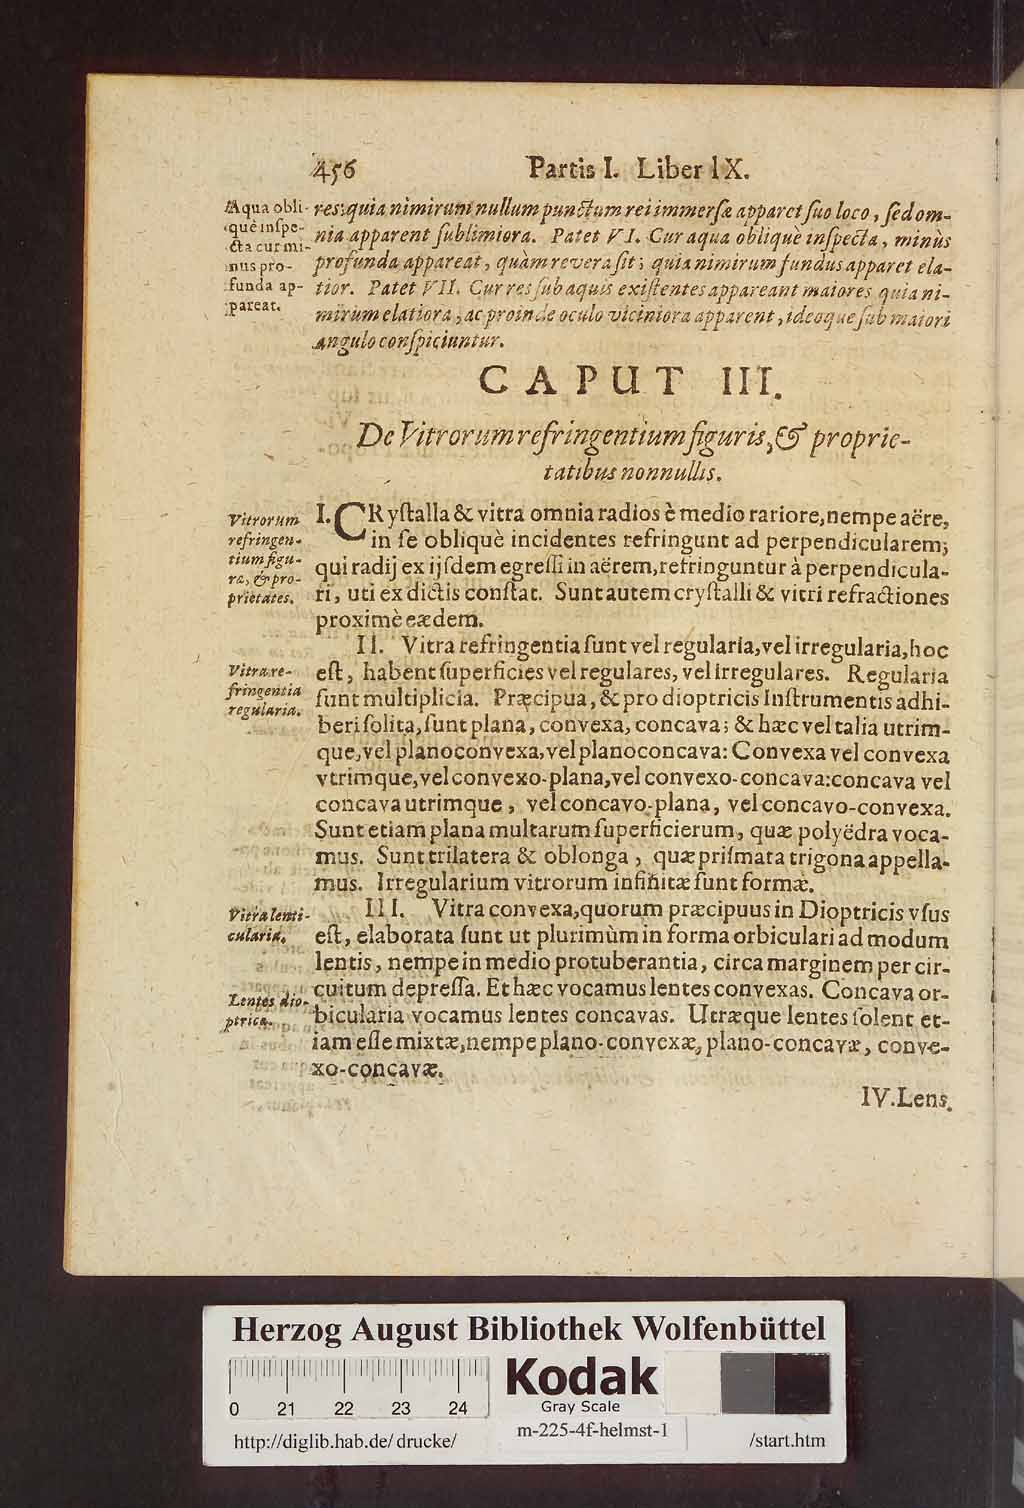 456 Partis I. Liber IX.
Aqua obli-
què inspe-
cta cur mi-
nus pro-
funda ap-
pareat.
res: quia nimirum nullum punctum rei immersæ apparet suo loco, sed om-
nia apparent sublimiora. Patet VI. Cur aqua obliquè inspecta, minùs
profunda appareat, quàm revera sit; quia nimirum fundus apparet ela-
tior. Patet VII. Cur res sub aquis existentes appareant maiores quia ni-
mirum elatiora, ac proinde oculo viciniora apparent, ideoque sub maiori
angulo conspiciuntur.
CAPUT III.
De Vitrorum refringentium figuris, & proprie-
tatibus nonnullis.
Vitrorum
refringen-
tium figu-
ræ, & pro-
prietates.
I. CRystalla & vitra omnia radios è medio rariore, nempe aëre,
in se obliquè incidentes refringunt ad perpendicularem;
qui radij ex ijsdem egressi in aërem, refringuntur à perpendicula-
ri, uti ex dictis constat. Sunt autem crystalli & vitri refractiones
proximè eædem.
II. Vitra refringentia sunt vel regularia, vel irregularia, hoc
Vitra re-
fringentia
regularia.
est, habent superficies vel regulares, vel irregulares. Regularia
sunt multiplicia. Præcipua, & pro dioptricis Instrumentis adhi-
beri solita, sunt plana, convexa, concava; & hæc vel talia utrim-
que, vel planoconvexa, vel planoconcava: Convexa vel convexa
vtrimque, vel convexo-plana, vel convexo-concava: concava vel
concava utrimque, vel concavo-plana, vel concavo-convexa.
Sunt etiam plana multarum superficierum, quæ polyëdra voca-
mus. Sunt trilatera & oblonga, quæ prismata trigona appella-
mus. Irregularium vitrorum infinitæ sunt formæ.
Vitra lenti-
cularia.
III. Vitra convexa, quorum præcipuus in Dioptricis vsus
est, elaborata sunt ut plurimùm in forma orbiculari ad modum
lentis, nempe in medio protuberantia, circa marginem per cir-
Lentes dio-
ptricæ.
cuitum depressa. Et hæc vocamus lentes convexas. Concava or-
bicularia vocamus lentes concavas. Utræque lentes solent et-
iam esse mixtæ, nempe plano-convexæ, plano-concavæ, conve-
xo-concavæ.
IV. Lens.
Herzog August Bibliothek Wolfenbüttel
0 21 22 23 24
Kodak
Gray Scale
m-225-4f-helmst-1
http://diglib.hab.de/drucke/ /start.htm